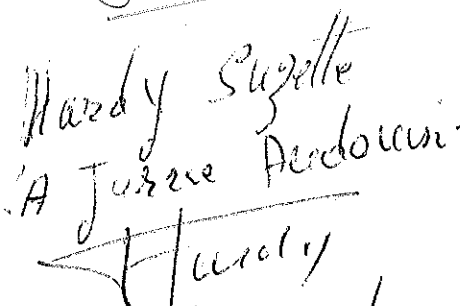 Hardy Suzette
A Jusrue Audouin
Hardy